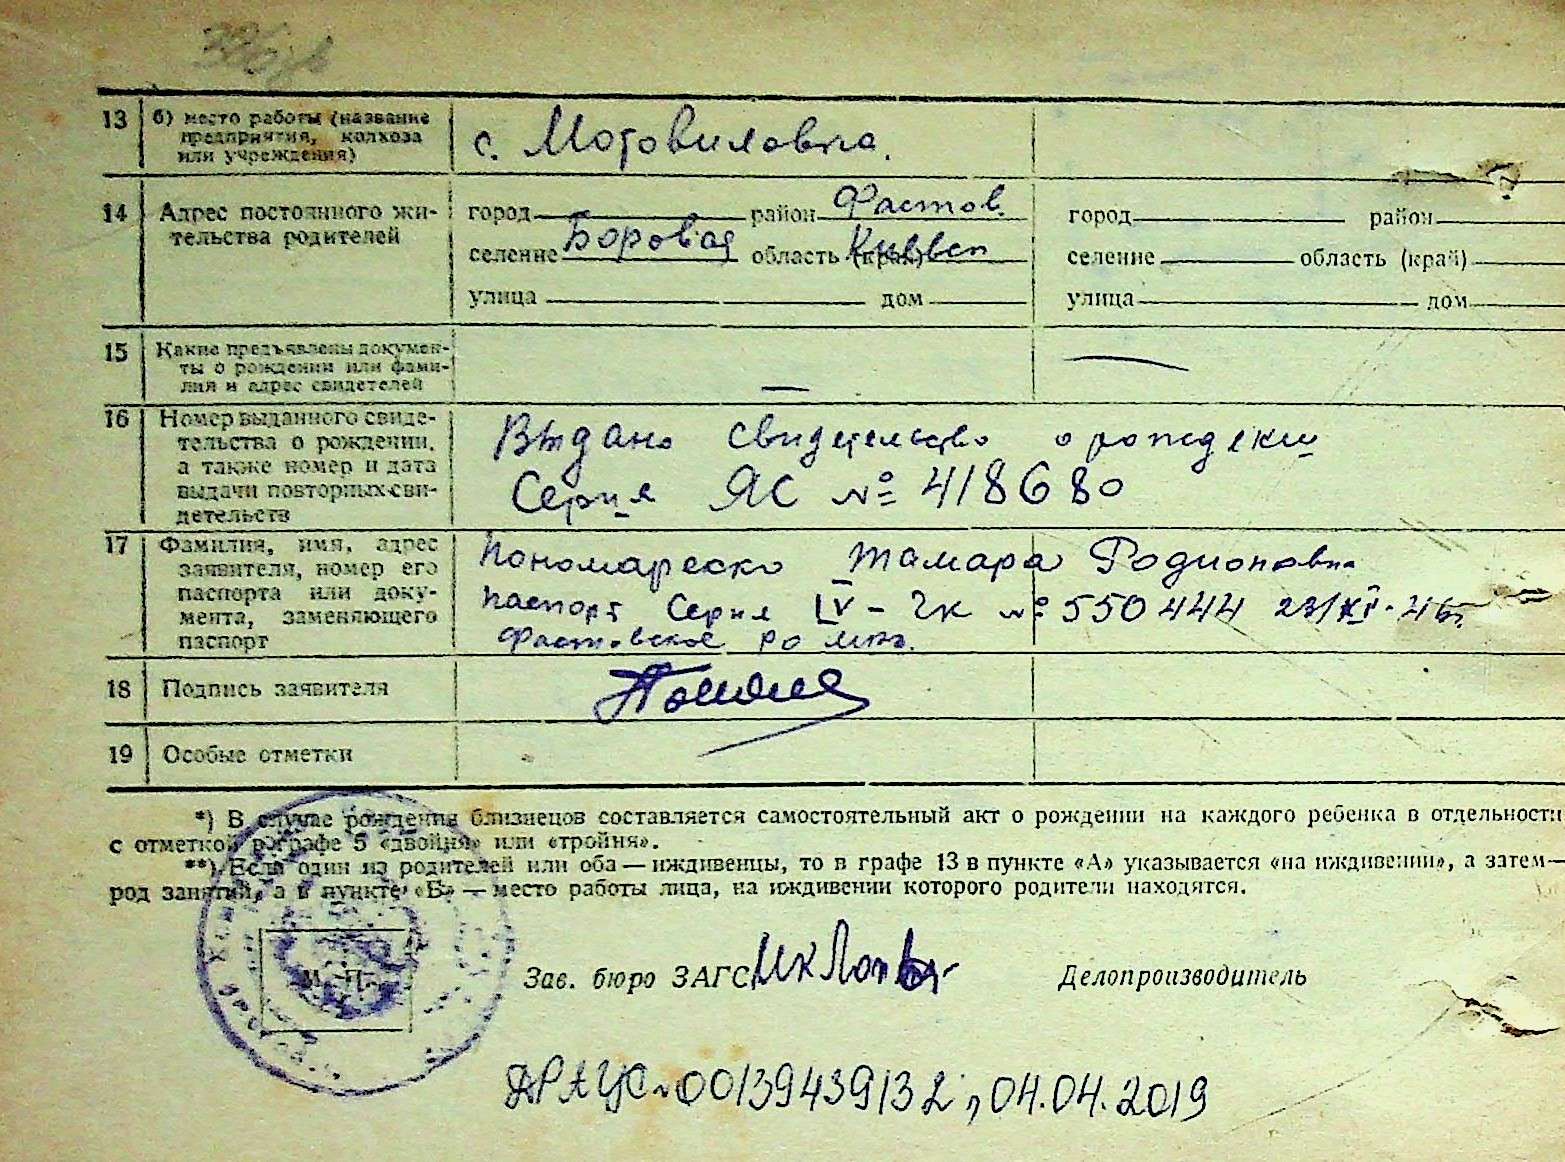 13 б) место работы (название
предприятия, колхоза
или учреждения)
с. Мотовиловка.
14 Адрес постоянного жи-
тельства родителей
город район Фастов.
селение Боровая область (край) Киевск
улица дом
город район
селение область (край)
улица дом
15 Какие предъявлены докумен-
ты о рождении или фами-
лия и адрес свидетелей
— —
16 Номер выданного свиде-
тельства о рождении,
а также номер и дата
выдачи повторных сви-
детельств
Выдано свидетельство о рождении
Серия ЯС № 418680
17 Фамилия, имя, адрес
заявителя, номер его
паспорта или доку-
мента, заменяющего
паспорт
Тамара Родионовна
паспорт Серия IV-ЧК № 550444
Фастовское РО
18 Подпись заявителя
19 Особые отметки
*) В случае рождения близнецов составляется самостоятельный акт о рождении на каждого ребенка в отдельности
с отметкой в графе 5 «двойня» или «тройня».
**) Если один из родителей или оба — иждивенцы, то в графе 13 в пункте «А» указывается «на иждивении», а затем —
род занятий, а в пункте «Б» — место работы лица, на иждивении которого родители находятся.
М. П.
Зав. бюро ЗАГС
Делопроизводитель
ДРАЦС № 00139439132, 04.04.2019